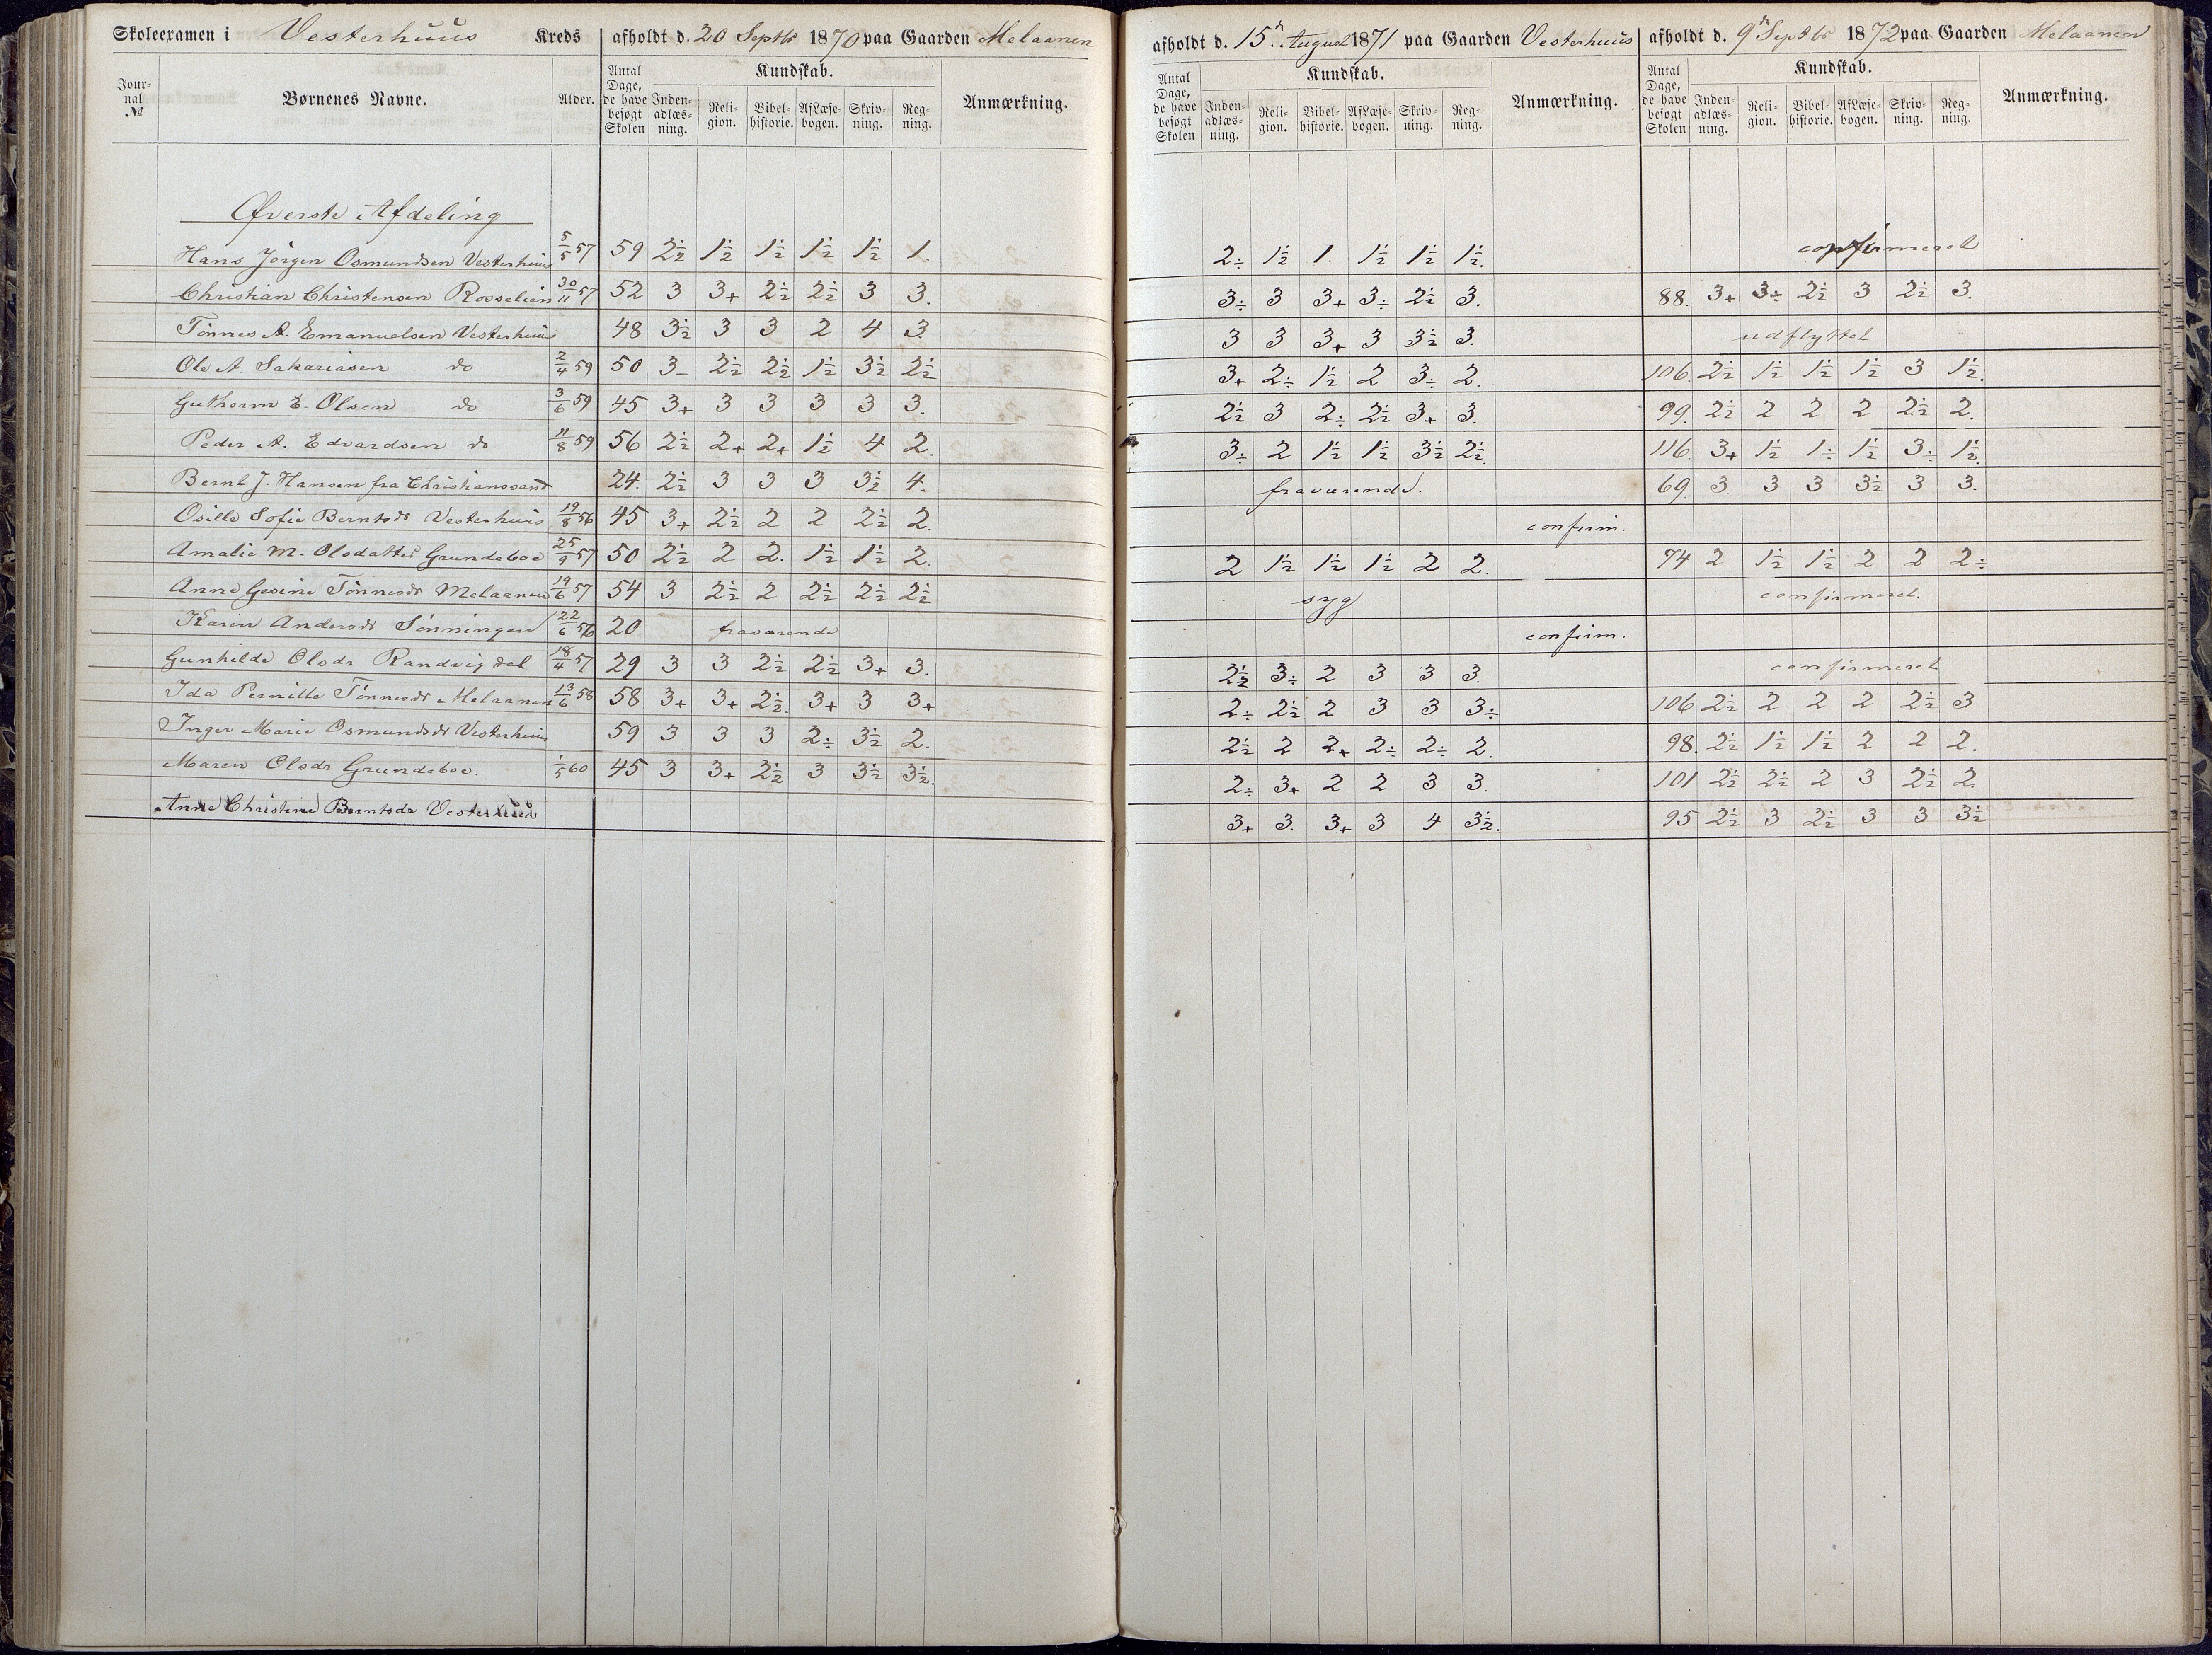 Skoleexamen i Vesterhuus Kreds afholdt d. 20 Septbr 1870 paa Gaarden Melaanen
Jour-nal № Børnenes Navne. Alder. Antal Dage, de have besøgt Skolen Kundskab. Inden-adlæs-ning. Reli-gion. Bibel-historie. AfLæse-bogen. Skriv-ning. Reg-ning. Anmærkning.
Øverste Afdeling
Hans Jörgen Osmundsen Vesterhuus 5/5 57 59 2½ 1½ 1½ 1½ 1½ 1.
Christian Christensen Rosselien 30/11 57 52 3 3+ 2½ 2½ 3 3.
Tönnes A. Emanuelsen Vesterhuus 48 3½ 3 3 2 4 3.
Ole A. Sakariasen do 2/4 59 50 3- 2½ 2½ 1½ 3½ 2½
Guthorm E. Olsen do 3/6 59 45 3+ 3 3 3 3 3.
Peder A. Edvardsen do 11/8 59 56 2½ 2+ 2+ 1½ 4 2.
Bernt J. Hansen fra Christianssand 24. 2½ 3 3 3 3½ 4.
Osille Sofie Berntsdr Vesterhuus 19/8 56 45 3+ 2½ 2 2 2½ 2.
Amalie M. Olsdatter Grundeboe 25/9 57 50 2½ 2 2. 1½ 1½ 2.
Anne Gesine Tönnesdr Melaanen 19/6 57 54 3 2½ 2 2½ 2½ 2½
Karen Andersdr Sönningen 22/6 56 20 fraværende
Gunhilde Olsdr Randvigdal 18/4 57 29 3 3 2½ 2½ 3+ 3.
Ida Pernille Tönnesdr Melaanen 13/6 58 58 3+ 3+ 2½. 3+ 3 3+
Inger Marie Osmundsdr Vesterhuus 59 3 3 3 2÷ 3½ 2.
Maren Olsdr Grundeboe. 1/5 60 45 3 3+ 2½ 3 3½ 3½.
Anne Christine Berntsdr Vesterhuus
afholdt d. 15n August 1871 paa Gaarden Vesterhuus
Antal Dage, de have besøgt Skolen Kundskab. Inden-adlæs-ning. Reli-gion. Bibel-historie. AfLæse-bogen. Skriv-ning. Reg-ning. Anmærkning.
2÷ 1½ 1. 1½ 1½ 1½.
3÷ 3 3+ 3÷ 2½ 3.
3 3 3+ 3 3½ 3.
3+ 2÷ 1½ 2 3÷ 2.
2½ 3 2÷ 2½ 3+ 3.
3÷ 2 1½ 1½ 3½ 2½.
fraværende.
confirm.
2 1½ 1½ 1½ 2 2.
syg
confirm.
2½ 3÷ 2 3 3 3.
2÷ 2½ 2 3 3 3÷
2½ 2 2+ 2÷ 2÷ 2.
2÷ 3+ 2 2 3 3.
3+ 3. 3+ 3 4 3½.
afholdt d. 9n Septbr 1872 paa Gaarden Melaanen
Antal Dage, de have besøgt Skolen Kundskab. Inden-adlæs-ning. Reli-gion. Bibel-historie. AfLæse-bogen. Skriv-ning. Reg-ning. Anmærkning.
confirmeret
88. 3+ 3÷ 2½ 3 2½ 3.
udflyttet
106. 2½ 1½ 1½ 1½ 3 1½.
99. 2½ 2 2 2 2½ 2.
116. 3+ 1½ 1÷ 1½ 3÷ 1½.
69. 3 3 3 3½ 3 3.
74 2 1½ 1½ 2 2 2÷
confirmeret.
confirmeret
106 2½ 2 2 2 2½ 3
98. 2½ 1½ 1½ 2 2 2.
101 2½ 2½ 2 3 2½ 2.
95 2½ 3 2½ 3 3 3½